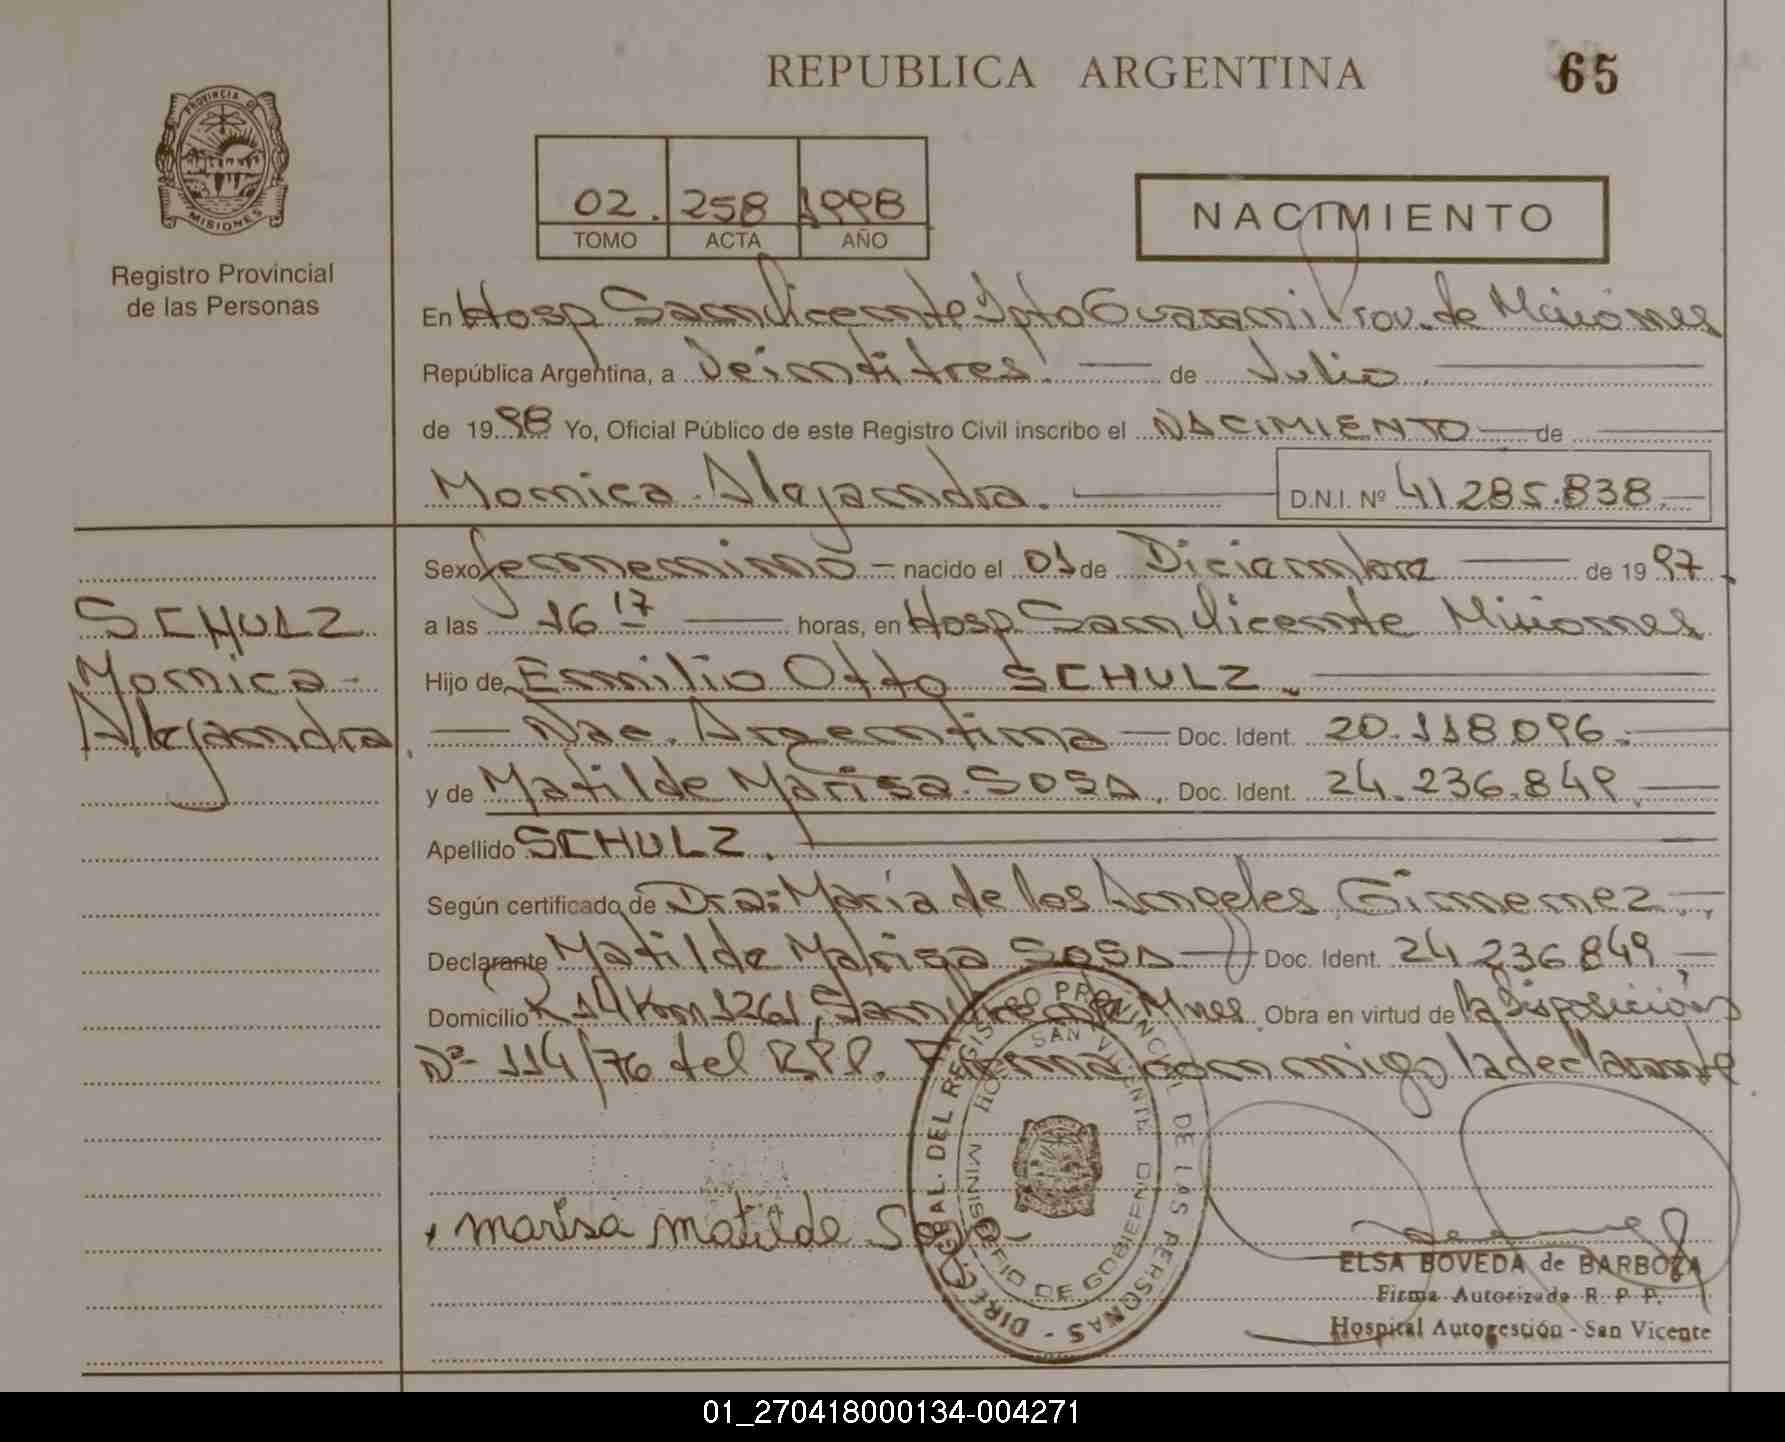 REPUBLICA ARGENTINA
65
PROVINCIA DE
MISIONES
Registro Provincial
de las Personas
02. 258 1998
TOMO ACTA AÑO
NACIMIENTO
En Hosp San Vicente Dpto Guarani Prov. de Misiones
República Argentina, a Veintitres de Julio
de 1998 Yo, Oficial Público de este Registro Civil inscribo el NACIMIENTO de
Monica Alejandra. D.N.I. Nº 41.285.838
SCHULZ
Monica
Alejandra
Sexo femenino nacido el 01 de Diciembre de 1997
a las 16 17 horas, en Hosp San Vicente Misiones
Hijo de Emilio Otto SCHULZ
Nac. Argentina Doc. Ident. 20.118.096
y de Matilde Marisa SOSA Doc. Ident. 24.236.849
Apellido SCHULZ.
Según certificado de Dra: María de los Angeles Gimenez
Declarante Matilde Marisa SOSA Doc. Ident. 24.236.849
Domicilio R 14 Km 1261, San Vicente Mnes. Obra en virtud de la Disposición
Nº 114/76 del R.P.P. Firma conmigo la declarante
marisa matilde Sosa
DIREC. GRAL. DEL REGISTRO PROVINCIAL DE LAS PERSONAS
SAN VICENTE
MINISTERIO DE GOBIERNO
ELSA BOVEDA de BARBOZA
Firma Autorizada R. P. P.
Hospital Autogestión - San Vicente
01_270418000134-004271